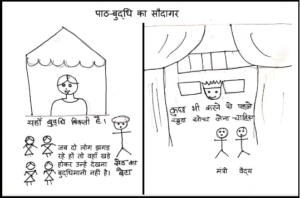 पाठ-बुद्धि का सौदागर
यहाँ बुद्धि बिकती है।
जब दो लोग झगड़
रहे हों तो वहाँ खड़े
होकर उन्हें देखना
बुद्धिमानी नहीं है।
सेठ का
बेटा
कुछ भी करने से पहले
खूब सोच लेना चाहिए
मंत्री वैद्य